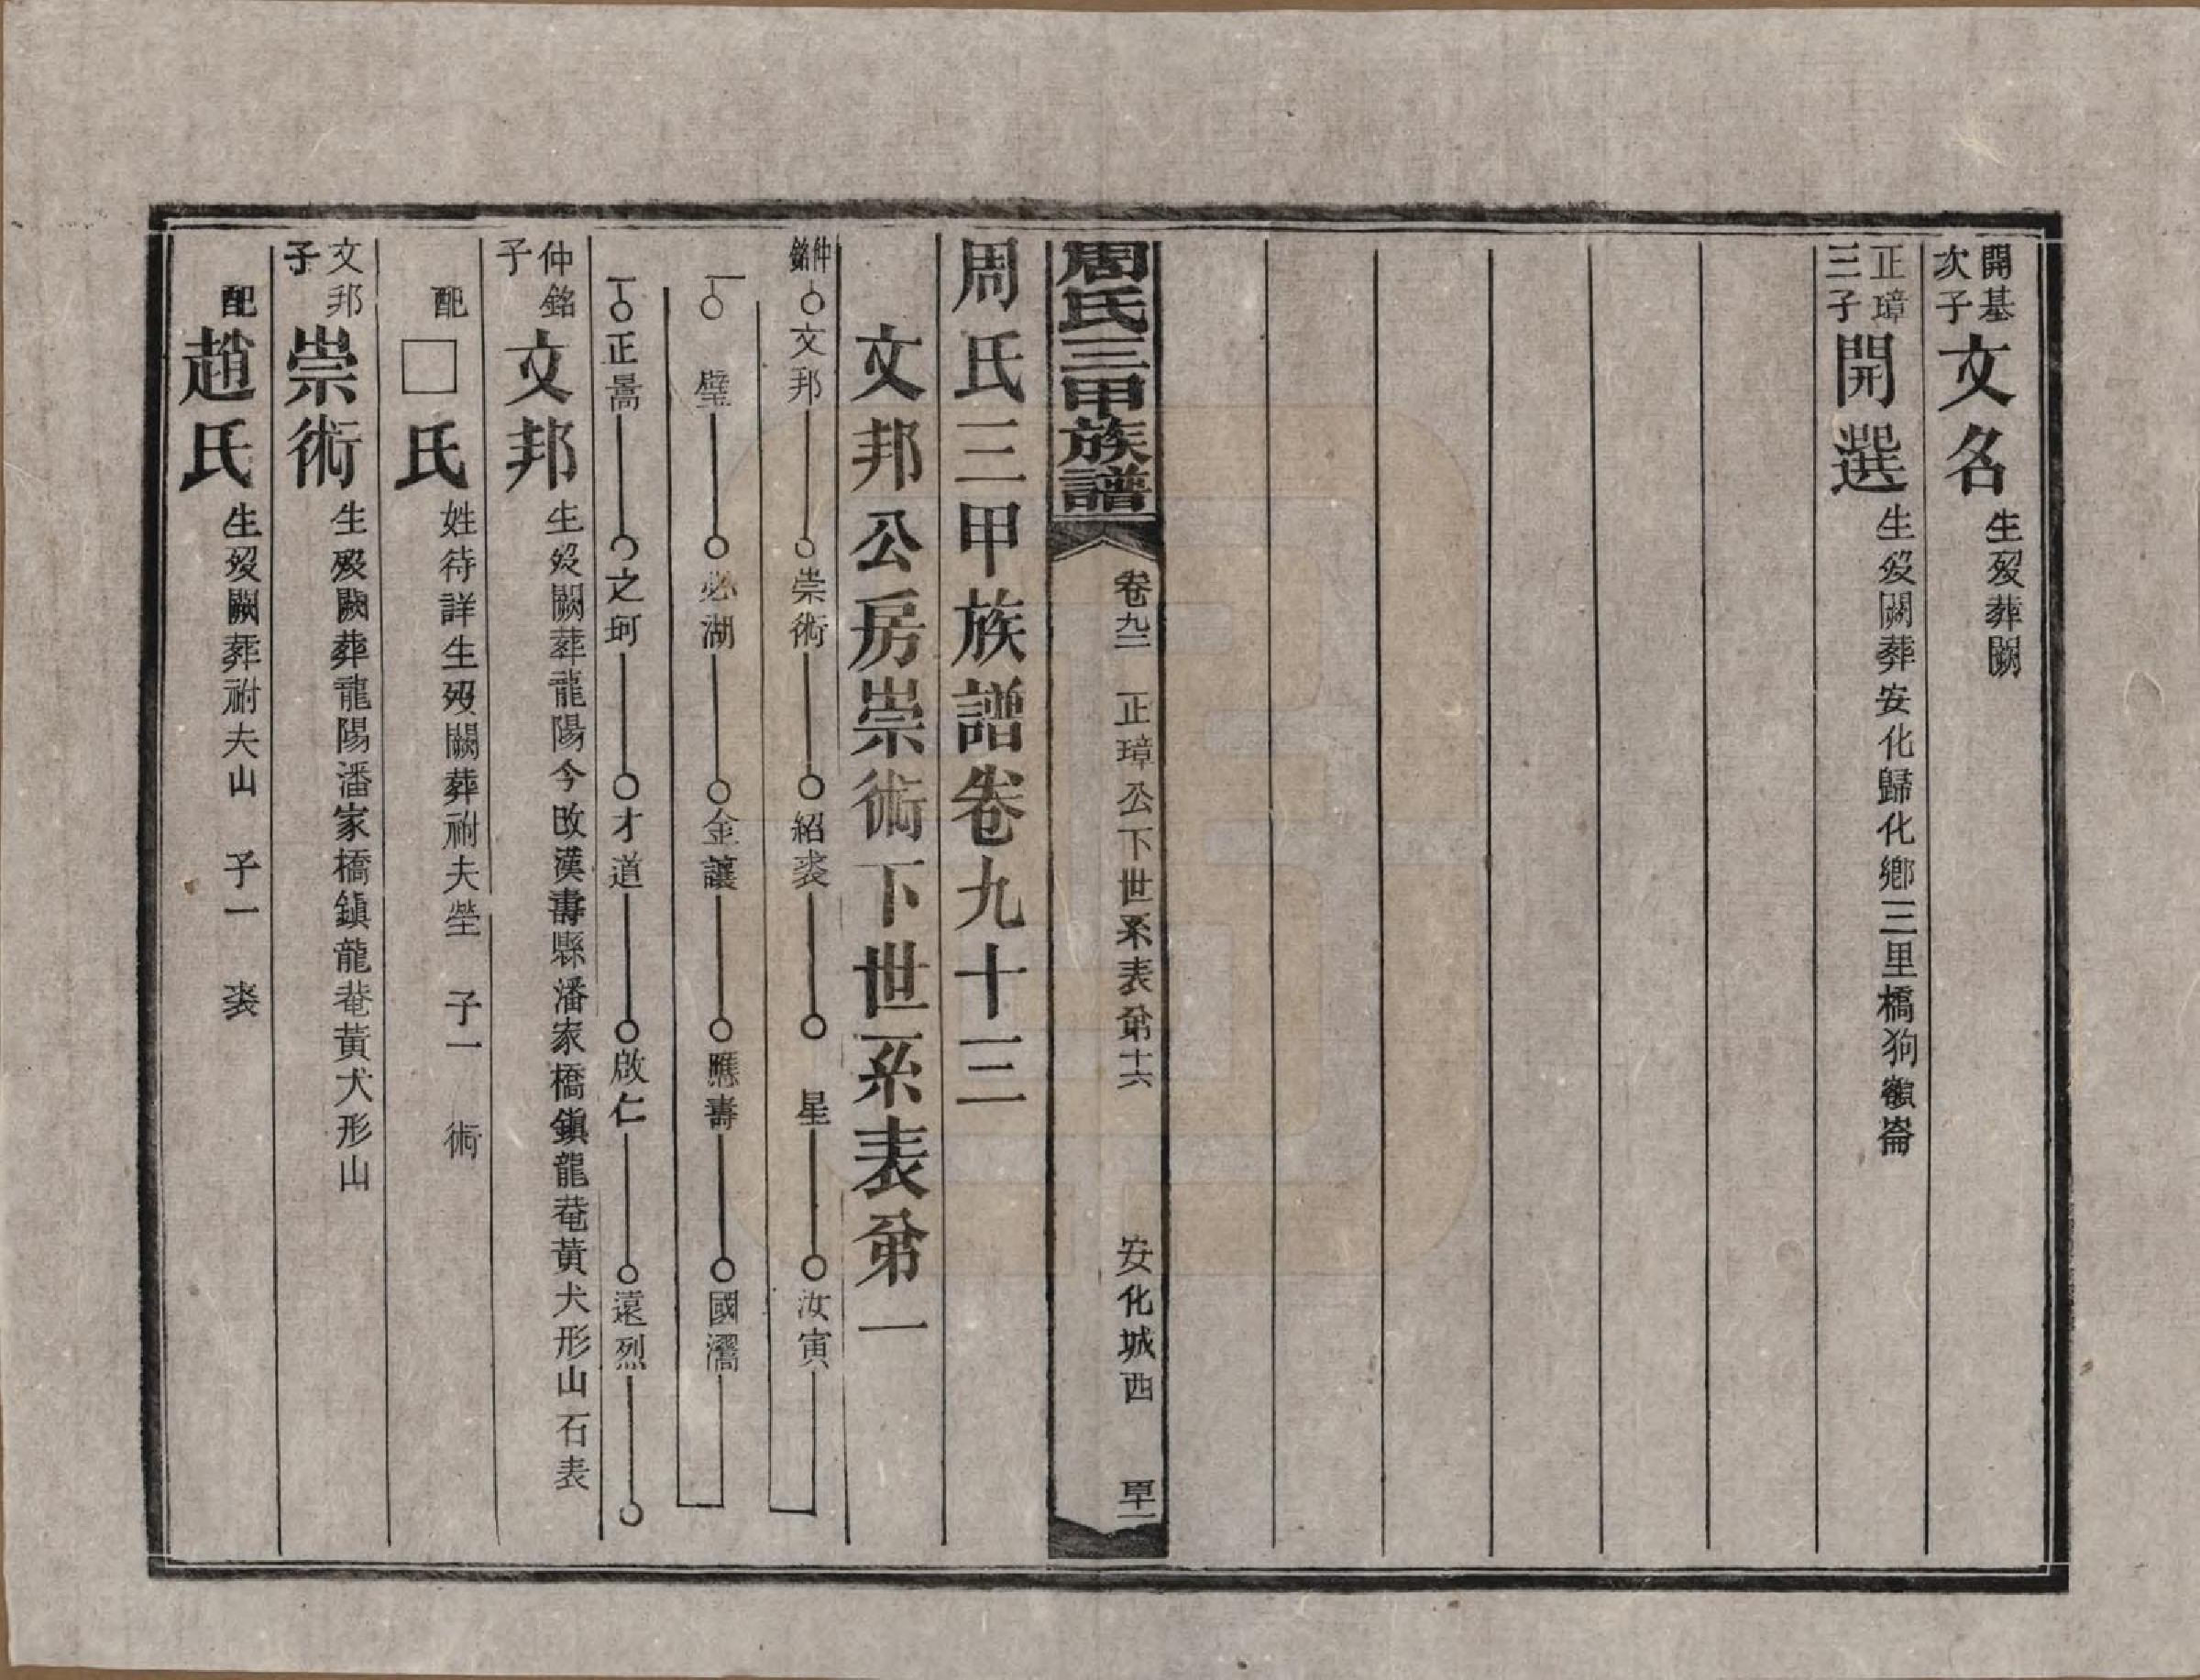 開基次子
文名 生歿葬闕
正璋三子
開選 生歿闕葬安化歸化鄉三里橋狗額崙
周氏三甲族譜 卷九二 正璋公下世系表第十六 安化城西
周氏三甲族譜卷九十三
文邦公房崇術下世系表第一
仲銘 文邦 崇術 紹裘 星 汝寅
璧 必湖 金讓 應壽 國濯
正暠 之珂 才道 啟仁 遠烈
仲銘子
文邦 生歿闕葬龍陽今改漢壽縣潘家橋鎮龍菴黃犬形山石表
配
□氏 姓待詳生歿闕葬祔夫塋 子一 術
文邦子
崇術 生歿闕葬龍陽潘家橋鎮龍菴黃犬形山
配
趙氏 生歿闕葬祔夫山 子一 裘